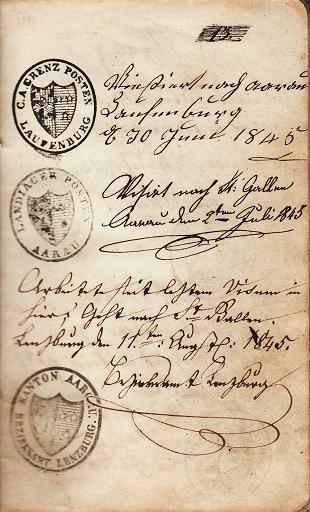 13.
C.A. GRENZ POSTEN
LAUFENBURG
Viesiert nach Aarau
Laufenburg
d 30 Juni 1845
LANDJAGER POSTEN
AARAU
Visirt nach St: Gallen
Aarau den 2ten Juli 1845
Arbeitet seit letztem Visum in
hier; Geht nach St Gallen.
Lenzburg den 11.ten: Augst: 1845.
Bezirksamt Lenzburg
KANTON AARGAU
BEZIRKSAMT LENZBURG.